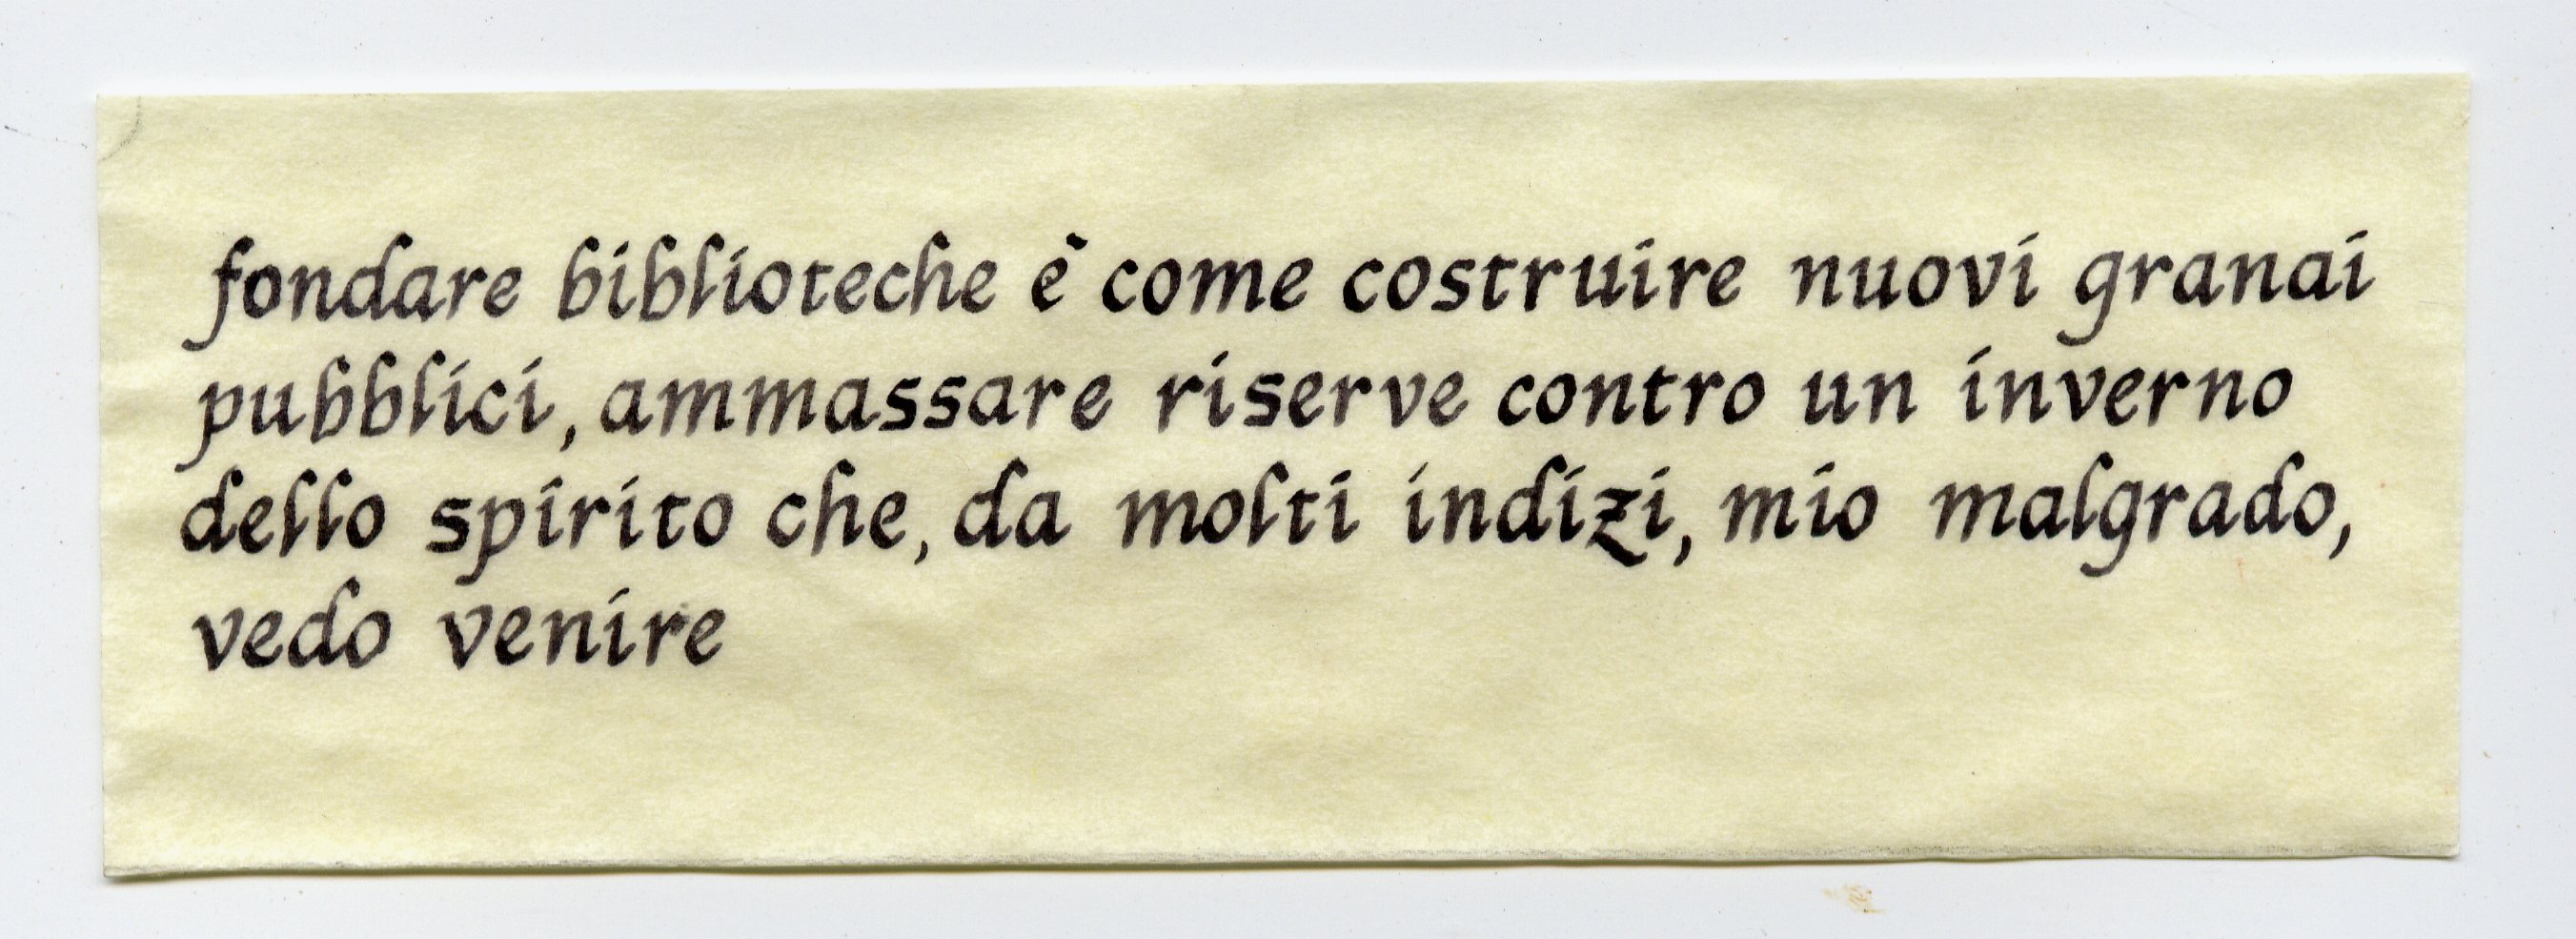 fondare biblioteche è come costruire nuovi granai
pubblici, ammassare riserve contro un inverno
dello spirito che, da molti indizi, mio malgrado,
vedo venire